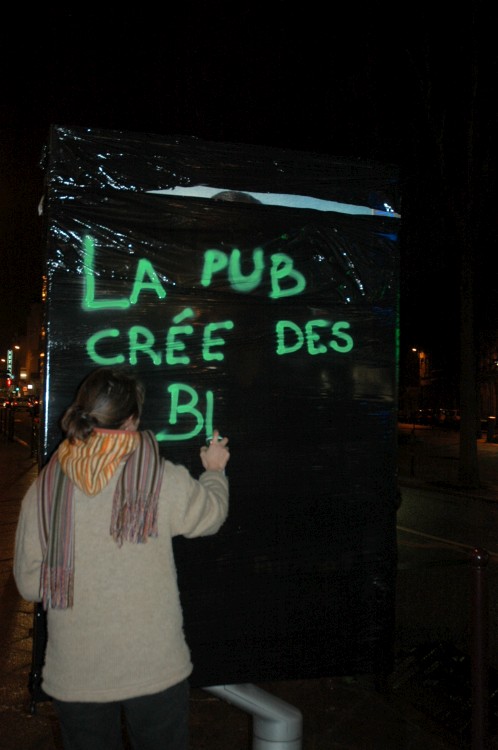 LA PUB
CRÉE DES
BI